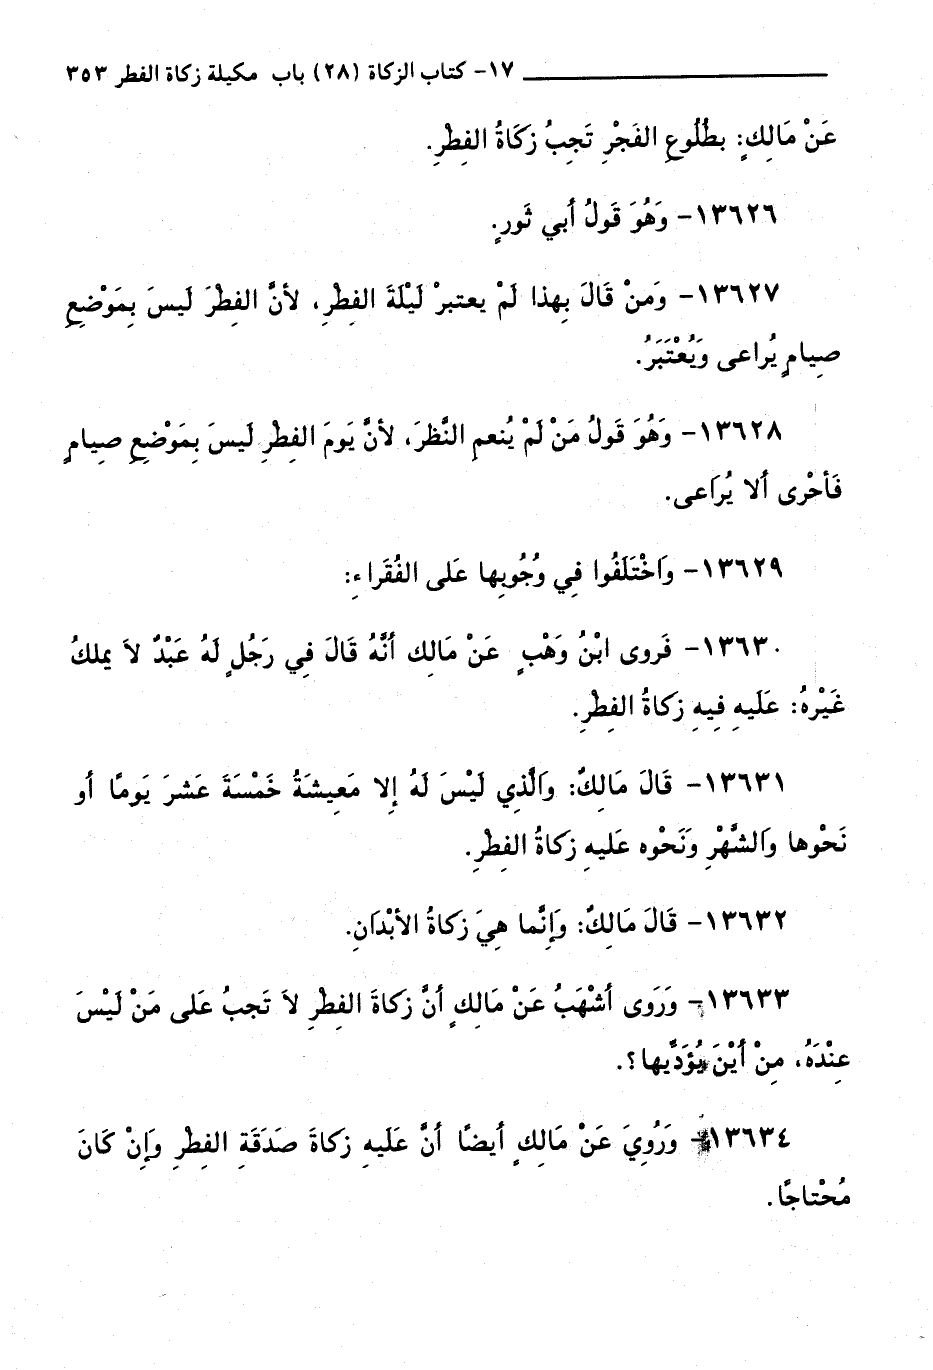 ١٧- كتاب الزكاة (٢٨) باب مكيلة زكاة الفطر ٣٥٣
عَنْ مَالِكٍ: بطُلُوعِ الفَجْرِ تَجِبُ زكَاةُ الفِطْرِ.
١٣٦٢٦- وَهُوَ قَولُ أبي ثَورٍ.
١٣٦٢٧- وَمنْ قَالَ بِهذا لَمْ يعتبرْ لَيْلَةَ الفِطْرِ، لأنَّ الفِطْرَ لَيسَ بِمَوْضِعِ
صيامٍ يُراعى وَيُعْتَبَرُ.
١٣٦٢٨- وَهُوَ قَولُ مَنْ لَمْ يُنعمِ النَّظرَ، لأنَّ يَومَ الفِطْرِ لَيسَ بِمَوْضِعِ صِيامٍ
فَأحْرى ألا يُرَاعى.
١٣٦٢٩- وَاخْتَلَفُوا فِي وُجُوبِها عَلى الفُقَراءِ:
١٣٦٣٠- فَروى ابْنُ وَهْبٍ عَنْ مَالِك أنَّهُ قَالَ فِي رَجُلٍ لَهُ عَبْدٌ لاَ يملكُ
غَيْرهُ: عَلَيهِ فِيهِ زكاةُ الفِطْرِ.
١٣٦٣١- قَالَ مَالِكٌ: وَالَّذِي لَيْسَ لَهُ إلا مَعِيشَةُ خَمْسَةَ عَشرَ يَومًا أو
نَحْوها وَالشَّهْرِ وَنَحْوه عَليهِ زكاةُ الفِطْرِ.
١٣٦٣٢- قَالَ مَالِكٌ: وَإنَّما هِيَ زكاةُ الأبْدَانِ.
١٣٦٣٣- وَرَوى أشْهَبُ عَنْ مَالِكٍ أنَّ زكاةَ الفِطْرِ لاَ تَجبُ عَلى مَنْ لَيْسَ
عِنْدَهُ، مِنْ أيْنَ يُؤَدِّيها؟.
١٣٦٣٤- وَرُوِيَ عَنْ مَالِكٍ أيضًا أنَّ عَلَيهِ زكاةَ صَدَقَةِ الفِطْرِ وَإنْ كَانَ
مُحْتاجًا.